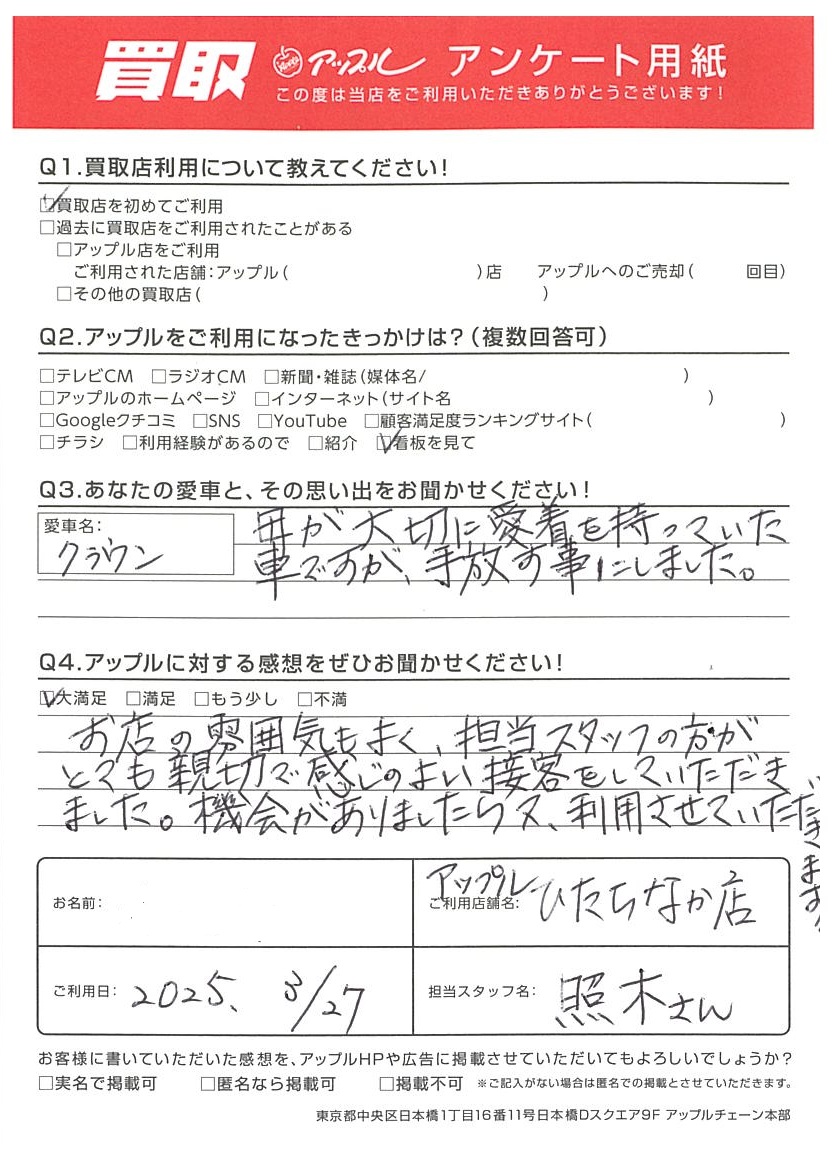 買取 アップル アンケート用紙
この度は当店をご利用いただきありがとうございます!
Q1.買取店利用について教えてください!
☑買取店を初めてご利用
□過去に買取店をご利用されたことがある
□アップル店をご利用
ご利用された店舗:アップル( )店 アップルへのご売却( 回目)
□その他の買取店( )
Q2.アップルをご利用になったきっかけは?(複数回答可)
□テレビCM □ラジオCM □新聞・雑誌(媒体名/ )
□アップルのホームページ □インターネット(サイト名 )
□Googleクチコミ □SNS □YouTube □顧客満足度ランキングサイト( )
□チラシ □利用経験があるので □紹介 ☑看板を見て
Q3.あなたの愛車と、その思い出をお聞かせください!
愛車名:
クラウン
母が大切に愛着を持っていた
車ですが、手放す事にしました。
Q4.アップルに対する感想をぜひお聞かせください!
☑大満足 □満足 □もう少し □不満
お店の雰囲気もよく、担当スタッフの方が
とても親切で感じのよい接客をしていただき
ました。機会がありましたら又、利用させていただきます。
お名前:
ご利用店舗名: アップルひたちなか店
ご利用日: 2025. 3/27
担当スタッフ名: 照木さん
お客様に書いていただいた感想を、アップルHPや広告に掲載させていただいてもよろしいでしょうか?
□実名で掲載可 □匿名なら掲載可 □掲載不可 ※ご記入がない場合は匿名での掲載とさせていただきます。
東京都中央区日本橋1丁目16番11号日本橋Dスクエア9F アップルチェーン本部